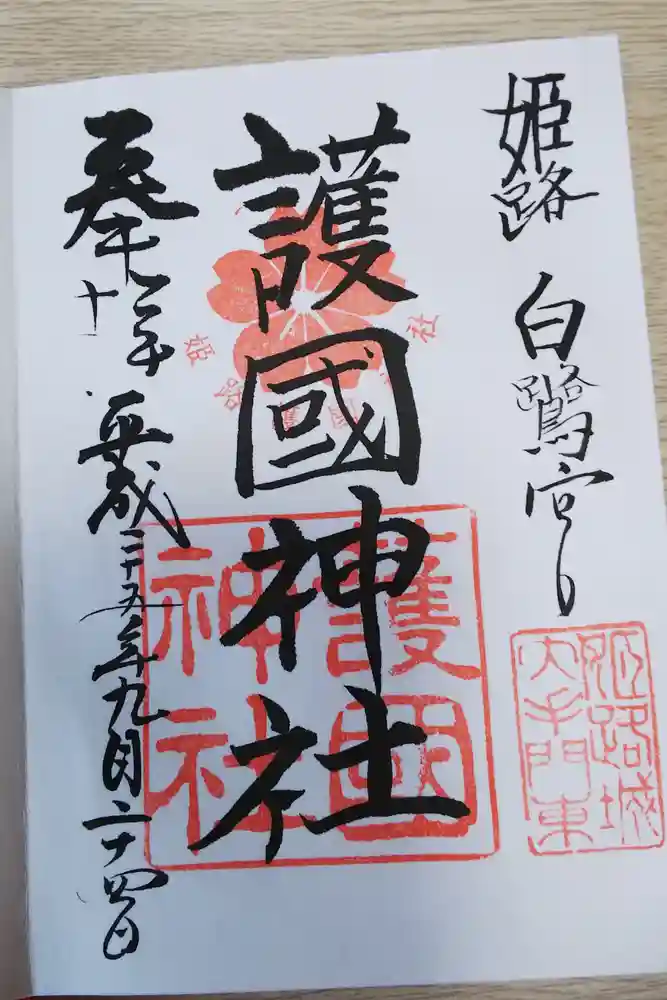 姫路 白鷺宮
姫路城
大手門東
護國神社
護國
神社
奉拝 平成二十五年九月二十四日